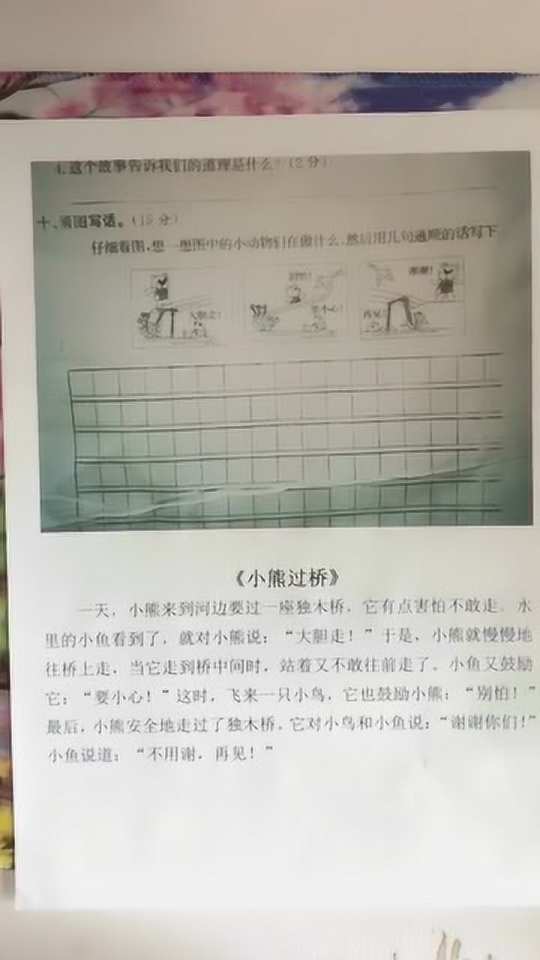 4.这个故事告诉我们的道理是什么?(2分)
十、看图写话。(15分)
仔细看图,想一想图中的小动物们在做什么,然后用几句通顺的话写下
大胆走!
别怕!
要小心!
谢谢!
再见!
《小熊过桥》
一天，小熊来到河边要过一座独木桥，它有点害怕不敢走。水
里的小鱼看到了，就对小熊说：“大胆走！”于是、小熊就慢慢地
往桥上走，当它走到桥中间时，站着又不敢往前走了。小鱼又鼓励
它：“要小心！”这时，飞来一只小鸟，它也鼓励小熊：“别怕！”
最后，小熊安全地走过了独木桥。它对小鸟和小鱼说：“谢谢你们！”
小鱼说道：“不用谢，再见！”